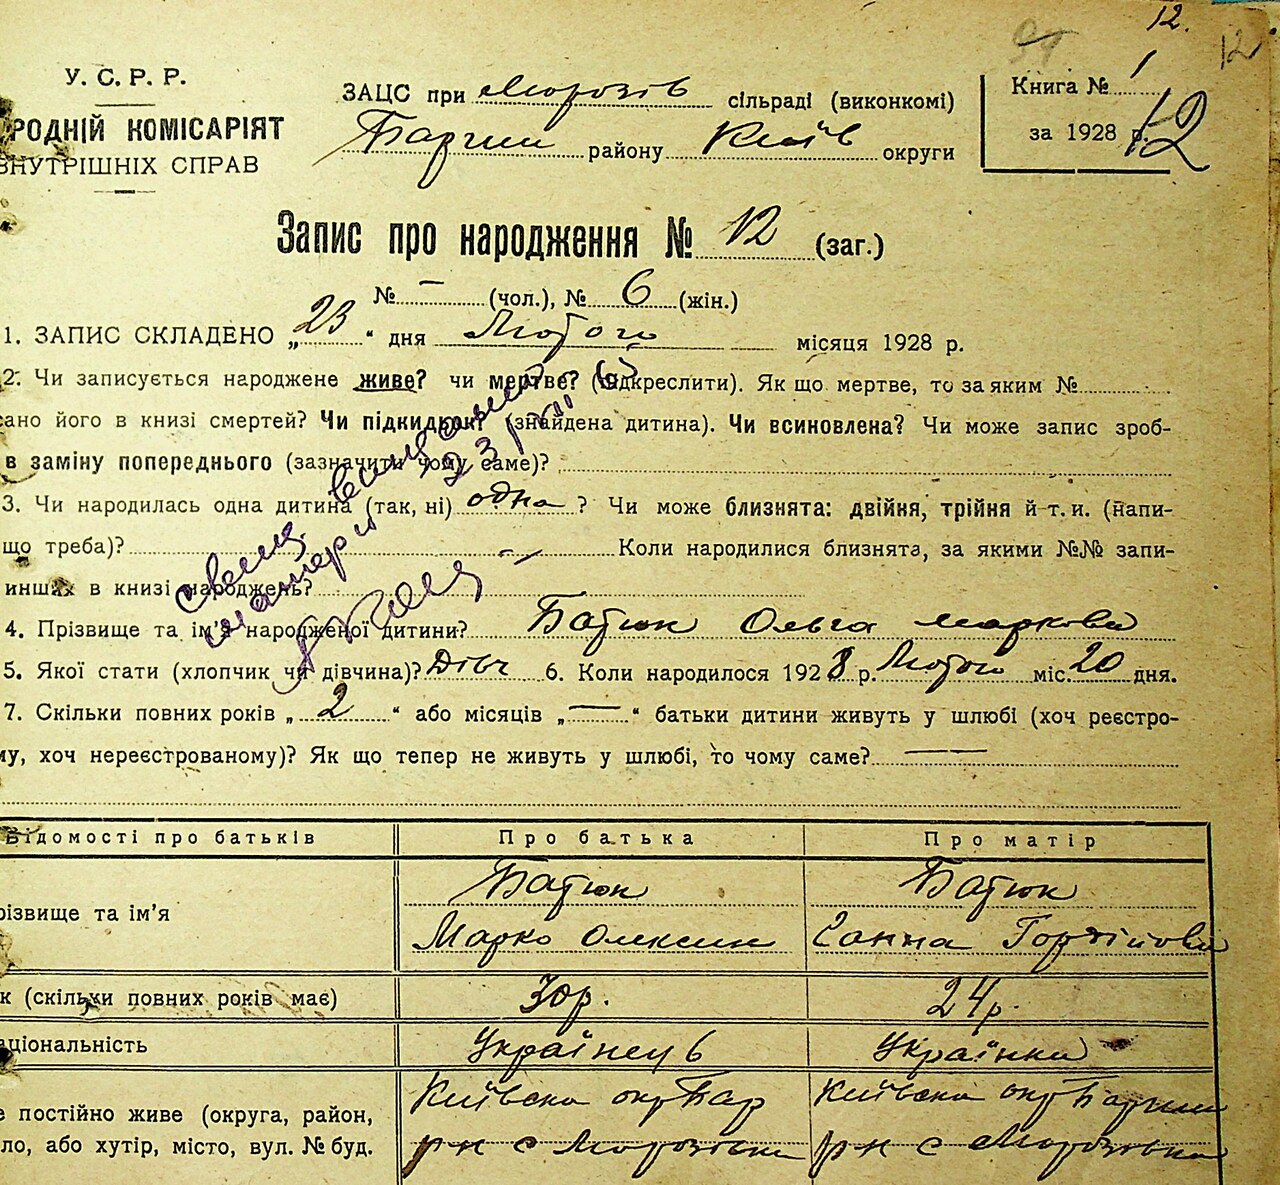 12.
12
У. С. Р. Р.
РОДНІЙ КОМІСАРІЯТ
ВНУТРІШНІХ СПРАВ
ЗАЦС при Морозів сільраді (виконкомі)
Баришв району Київ округи
Книга № 1
за 1928 р. 12
Запис про народження № 12 (заг.)
№ – (чол.), № 6 (жін.)
1. ЗАПИС СКЛАДЕНО „23“ дня Лютого місяця 1928 р.
2. Чи записується народжене живе? чи мертве? (підкреслити). Як що мертве, то за яким №
сано його в книзі смертей? Чи підкидьок? (знайдена дитина). Чи всиновлена? Чи може запис зроб-
в заміну попереднього (зазначити чому саме)?
3. Чи народилась одна дитина (так, ні) одна ? Чи може близнята: двійня, трійня й т. и. (напи-
що треба)? — Коли народилися близнята, за якими №№ запи-
инших в книзі народжень?
4. Прізвище та ім'я народженої дитини? Батюк Ольга Маркови
5. Якої стати (хлопчик чи дівчина)? Дівч 6. Коли народилося 1928 р. Лютого міс. 20 дня.
7. Скільки повних років „2“ або місяців „—“ батьки дитини живуть у шлюбі (хоч реєстро-
му, хоч нереєстрованому)? Як що тепер не живуть у шлюбі, то чому саме? —
Відомості про батьків Про батька Про матір
різвище та ім'я Батюк Батюк
Марко Олексин Ганна Гордійовн
к (скільки повних років має) 30р. 24р.
аціональність Українець Українка
е постійно живе (округа, район, Київська окр Бар Київська окр Баришв
ло, або хутір, місто, вул. № буд. р-н с Морозівка р-н с Морозівка